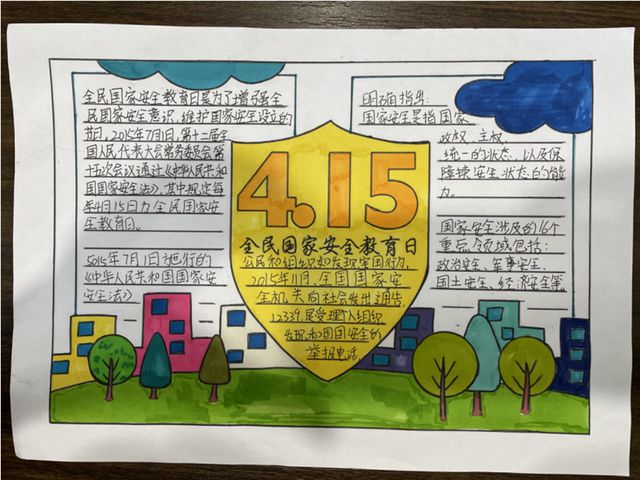 全民国家安全教育日是为了增强全
民国家安全意识，维护国家安全设立的
节日，2015年7月1日，第十二届全
国人民代表大会常务委员会第
十五次会议通过《中华人民共和
国国家安全法》其中规定每
年4月15日为全民国家安
全教育日。
5015年7月1日
《中华人民共和国国家安
安全法》
4.15
全民国家安全教育日
公民和组织如发现
国行为，
2015年11月，全国国家安
全机关向社会发出通告
12339是受理个人组织
发现和国国安全的
举报电话
明确指出：
国家安全是指国家
政权、主权、
统一的状态，以及保
障持续安全状态的能
力。
国家安全涉及的16个
重点领域包括：
政治安全、军事安全、
国土安全、经济安全等。